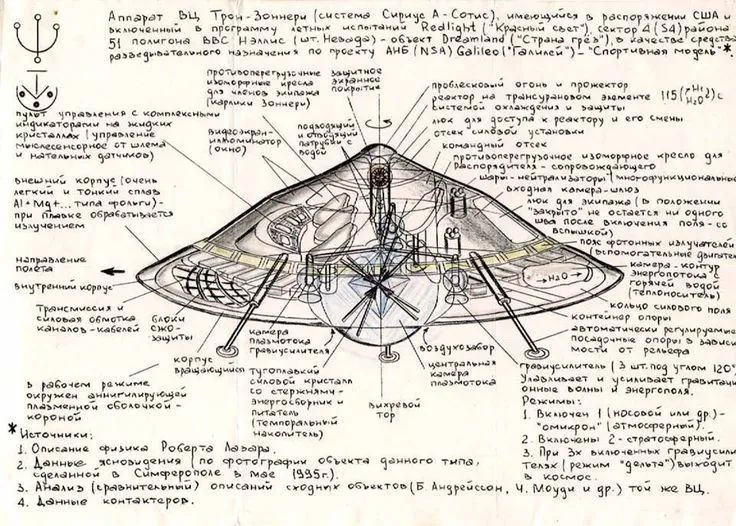 Аппарат ВЦ Трон-Зоннери (система Сириус А-Сотис), имеющийся в распоряжении США и
включенный в программу летных испытаний Redlight ("Красный свет"), сектор 4 (S4) района
51 полигона ВВС Нэллис (шт. Невада) - объект Dreamland ("Страна грёз"), в качестве средства
разведывательного назначения по проекту АНБ (NSA) Galileo ("Галилей") - "Спортивная модель" *.
противоперегрузочные
изоморфные кресла
для членов экипажа
(карлики Зоннери)
защитное
экранное
покрытие
проблесковый огонь и прожектор
реактор на трансурановом элементе 115
с системой охлаждения и защиты
люк для доступа к реактору и его смены
отсек силовой установки
командный отсек
противоперегрузочное изоморфное кресло для
Распорядителя - сопровождающего
шары-нейтрализаторы (многофункциональные)
входная камера-шлюз
люк для экипажа (в положении
"закрыто" не остается ни одного
шва после включения поля - со
вспышкой)
пояс фотонных излучателей
(вспомогательные двигатели)
камера-контур
энергопотока
горячей водой
(теплоноситель)
кольцо силового поля
контейнер опоры
автоматически регулируемые
посадочные опоры в зависи
мости от рельефа
пульт управления с комплексными
индикаторами на жидких
кристаллах (управление
мыслесенсорное от шлема
и натальных датчиков)
видеоэкран-
иллюминатор
(окно)
подводящий
и отводящий
патрубки с
водой
внешний корпус (очень
легкий и тонкий сплав
Al+Mg+... типа фольги) -
при плавке обрабатывается
излучением
направление
полета
внутренний корпус
H₂O
Трансмиссия и
силовая обмотка
каналов-кабелей
блоки
СЖО-
защиты
корпус
вращающийся
камера
плазмотока
гравиусилителя
тугоплавкий
силовой кристалл
со стержнями-
энергосборник и
питатель
(темпоральный
накопитель)
вихревой
тор
воздухозабор
центральная
камера
плазмотока
в рабочем режиме
окружен аннигилирующей
плазменной оболочкой-
короной
гравиусилитель (3 шт. под углом 120°)
Улавливает и усиливает гравитацион
онные волны и энергополя.
Режимы:
1. Включен 1 (носовой или др.) -
"омикрон" (атмосферный).
2. Включены 2 - стратосферный.
3. При 3х включенных гравиусили
телях (режим "дельта") выходит
в космос.
* Источники:
1. Описание физика Роберта Лазара.
2. Данные ясновидения (по фотографии объекта данного типа,
сделанной в Симферополе в мае 1995г.).
3. Анализ (сравнительный) описаний сходных объектов (Б. Андрейссон, Ч. Моуди и др.) той же ВЦ.
4. Данные контактеров.